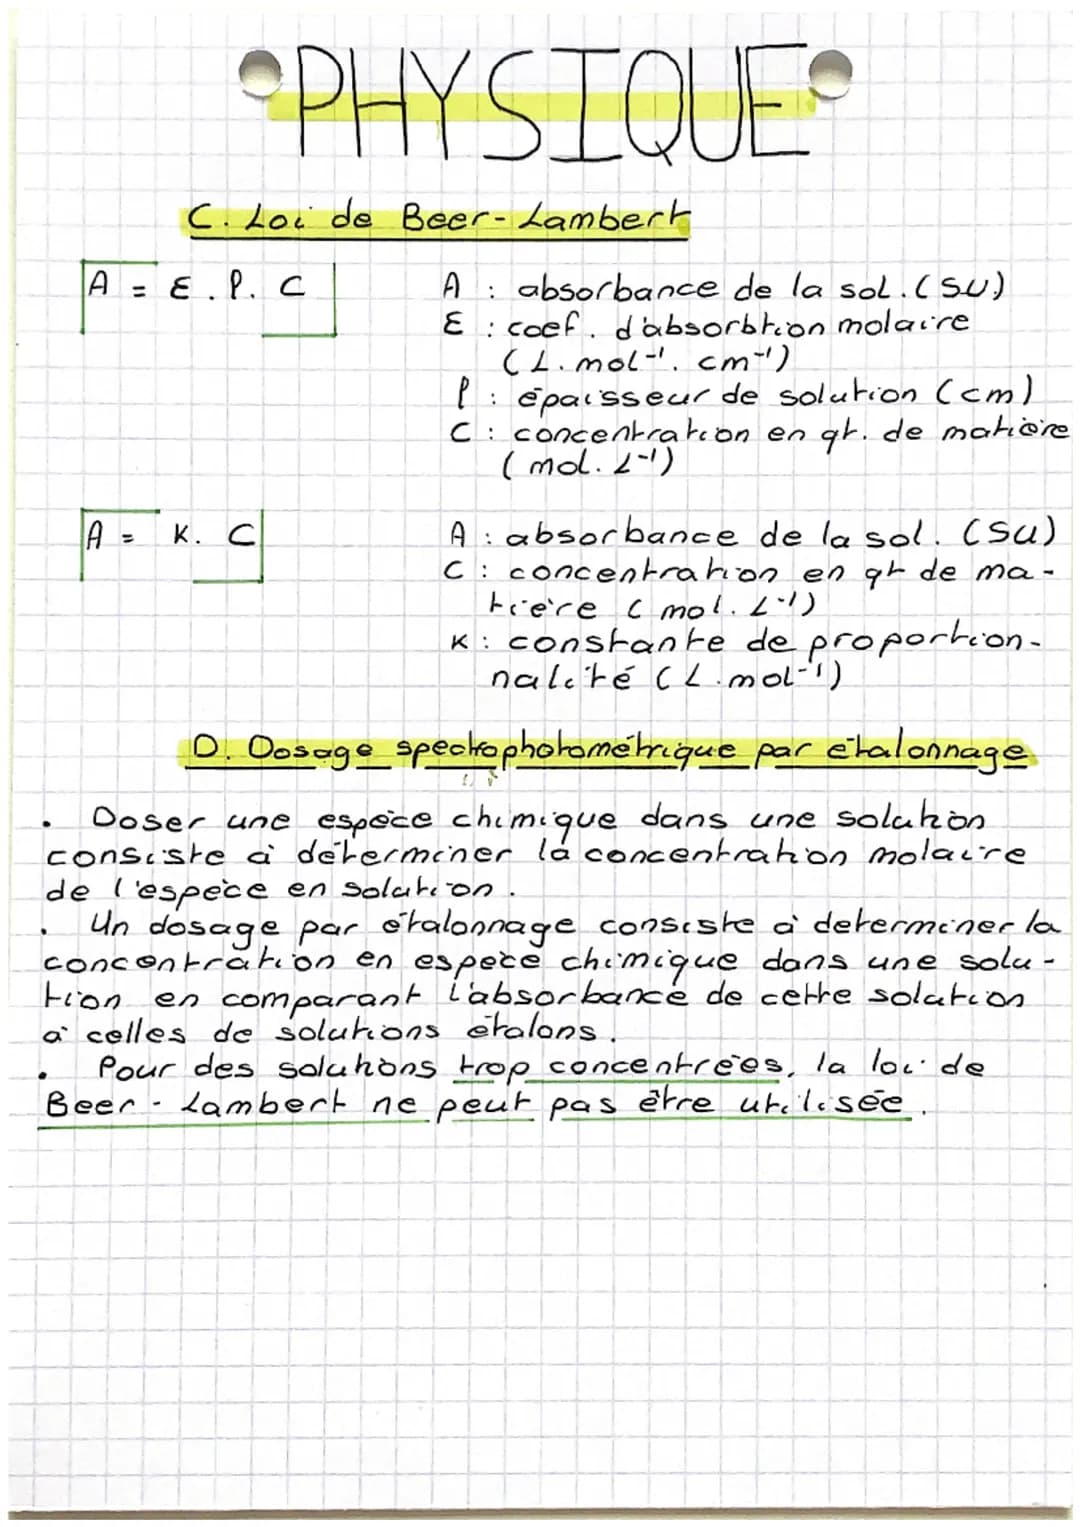 PHYSIQUE
C. Loi de Beer-Lambert
A = ε . l . C
A : absorbance de la sol. (SU)
ε : coef. d'absorbtion molaire
(L. mol⁻¹. cm⁻¹)
l : épaisseur de solution (cm)
C : concentration en qt. de matière
(mol. L⁻¹)
A = K. C
A : absorbance de la sol. (SU)
C : concentration en qt de ma-
tière (mol. L⁻¹)
K : constante de proportion-
nalité (L.mol⁻¹)
D. Dosage spectrophotométrique par étalonnage
• Doser une espèce chimique dans une solution
consiste à déterminer la concentration molaire
de l'espèce en solution.
• Un dosage par étalonnage consiste à determiner la
concentration en espèce chimique dans une solu-
tion en comparant l'absorbance de cette solution
à celles de solutions étalons.
• Pour des solutions trop concentrées, la loi de
Beer-Lambert ne peut pas être utilisée.